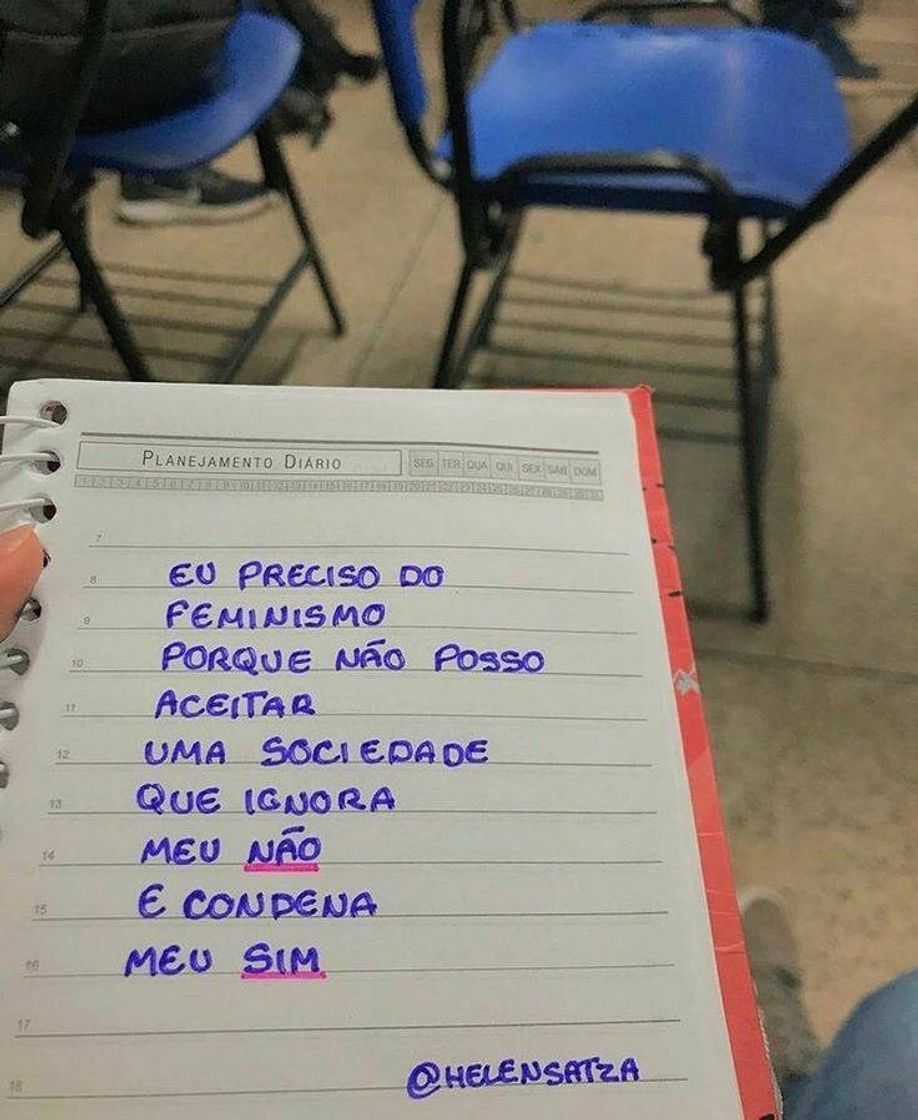 PLANEJAMENTO DIÁRIO
SEG TER QUA QUI SEX SAB DOM
1 2 3 4 5 6 7 8 9 10 11 12 13 14 15 16 17 18 19 20 21 22 23 24 25 26 27 28 29 30 31
7
8 EU PRECISO DO
9 FEMINISMO
10 PORQUE NÃO POSSO
11 ACEITAR
12 UMA SOCIEDADE
13 QUE IGNORA
14 MEU NÃO
15 E CONDENA
16 MEU SIM
17
18 @HELENSATZA